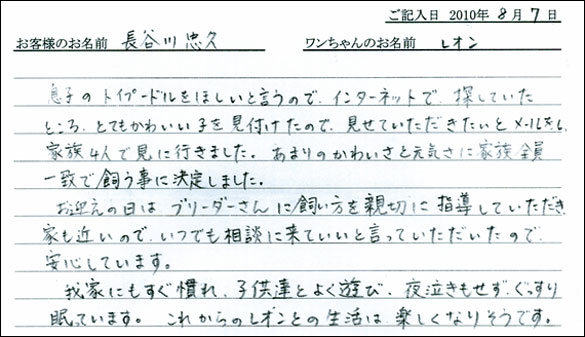 ご記入日 2010年 8月 7日
お客様のお名前 長谷川 忠久 ワンちゃんのお名前 レオン
息子のトイプードルをほしいと言うので、インターネットで、探していた
ところ、とてもかわいい子を見付けたので、見せていただきたいとメールをし、
家族4人で見に行きました。あまりのかわいさと元気さに家族全員
一致で飼う事に決定しました。
お迎えの日はブリーダーさんに飼い方を親切に指導していただき
家も近いので、いつでも相談に来ていいと言っていただいたので、
安心しています。
我家にもすぐ慣れ、子供達とよく遊び、夜泣きもせず、ぐっすり
眠っています。これからのレオンとの生活は、楽しくなりそうです。